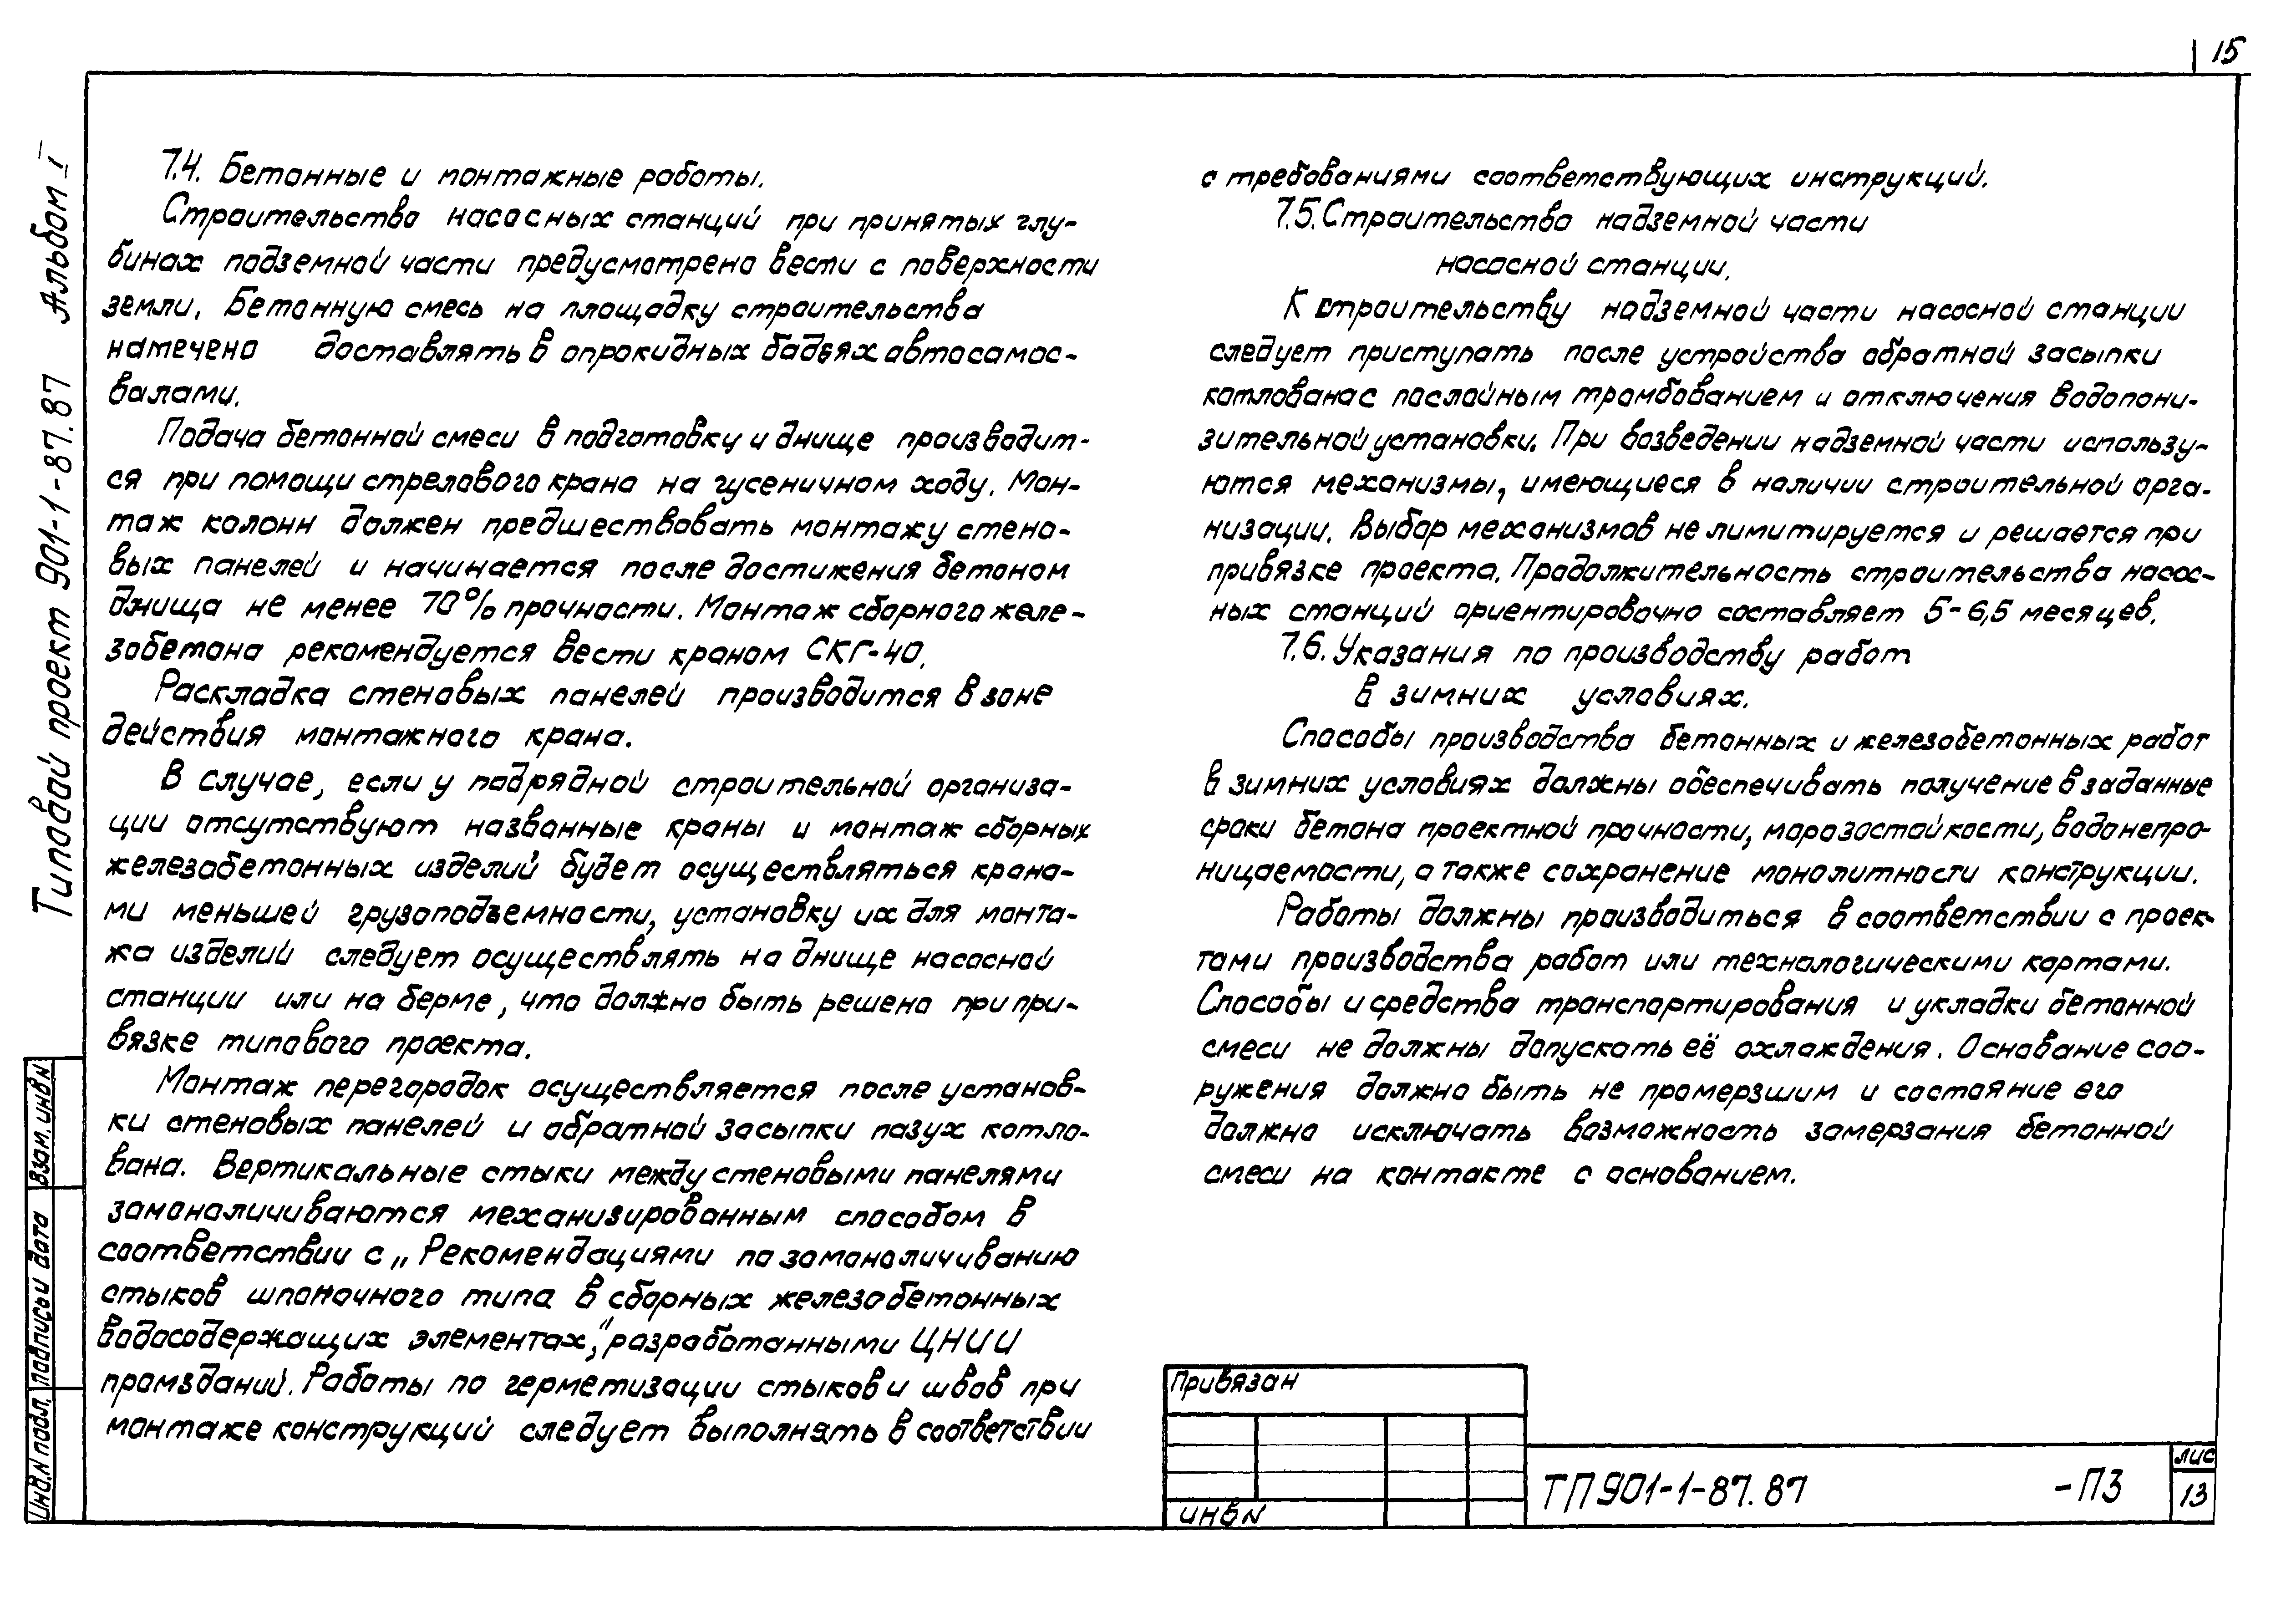 15
Типовой проект 901-1-87.87 Альбом I
7.4. Бетонные и монтажные работы.
Строительство насосных станций при принятых глу-
бинах подземной части предусмотрено вести с поверхности
земли. Бетонную смесь на площадку строительства
намечено доставлять в опрокидных бадьях автосамос-
валами.
Подача бетонной смеси в подготовку и днище производит-
ся при помощи стрелового крана на гусеничном ходу. Мон-
таж колонн должен предшествовать монтажу стено-
вых панелей и начинается после достижения бетоном
днища не менее 70% прочности. Монтаж сборного желе-
зобетона рекомендуется вести краном СКГ-40.
Раскладка стеновых панелей производится в зоне
действия монтажного крана.
В случае, если у подрядной строительной организа-
ции отсутствуют названные краны и монтаж сборных
железобетонных изделий будет осуществляться крана-
ми меньшей грузоподъемности, установку их для монта-
жа изделий следует осуществлять на днище насосной
станции или на берме, что должно быть решено при при-
вязке типового проекта.
Монтаж перегородок осуществляется после установ-
ки стеновых панелей и обратной засыпки пазух котло-
вана. Вертикальные стыки между стеновыми панелями
замоноличиваются механизированным способом в
соответствии с „Рекомендациями по замоноличиванию
стыков шпоночного типа в сборных железобетонных
водосодержащих элементах," разработанными ЦНИИ
промзданий. Работы по герметизации стыков и швов при
монтаже конструкций следует выполнять в соответствии
с требованиями соответствующих инструкций.
7.5. Строительство надземной части
насосной станции.
К строительству надземной части насосной станции
следует приступать после устройства обратной засыпки
котлована с послойным трамбованием и отключения водопони-
зительной установки. При возведении надземной части использу-
ются механизмы, имеющиеся в наличии строительной орга-
низации. Выбор механизмов не лимитируется и решается при
привязке проекта. Продолжительность строительства насос-
ных станций ориентировочно составляет 5-6,5 месяцев.
7.6. Указания по производству работ
в зимних условиях.
Способы производства бетонных и железобетонных работ
в зимних условиях должны обеспечивать получение в заданные
сроки бетона проектной прочности, морозостойкости, водонепро-
ницаемости, а также сохранение монолитности конструкции.
Работы должны производиться в соответствии с проек-
тами производства работ или технологическими картами.
Способы и средства транспортирования и укладки бетонной
смеси не должны допускать её охлаждения. Основание соо-
ружения должно быть не промерзшим и состояние его
должно исключать возможность замерзания бетонной
смеси на контакте с основанием.
Привязан
ИНВ N
ТП 901-1-87.87 -ПЗ
лис
13
Взам. инв N
Подпись и дата
Инв. N подл.